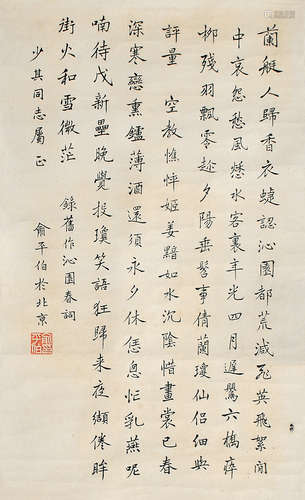 蘭艇人歸香衣蜨認沁園都荒減英飛絮閒
中哀怨愁風水客裏年光四月遲鶯六橋瘁
柳殘羽飄零趁夕陽垂髫事倩蘭瓊仙侶細與
評量 空教憔悴姬姜黯如水沉陰惜畫裳已春
深寒戀熏鑪薄酒還須永夕休恁忙乳燕呢
喃待戊新壘晚覺投瓊笑語狂歸来夜纈倦眸
街火和雪微茫 錄舊作沁園春詞
少其同志屬正
俞平伯於北京